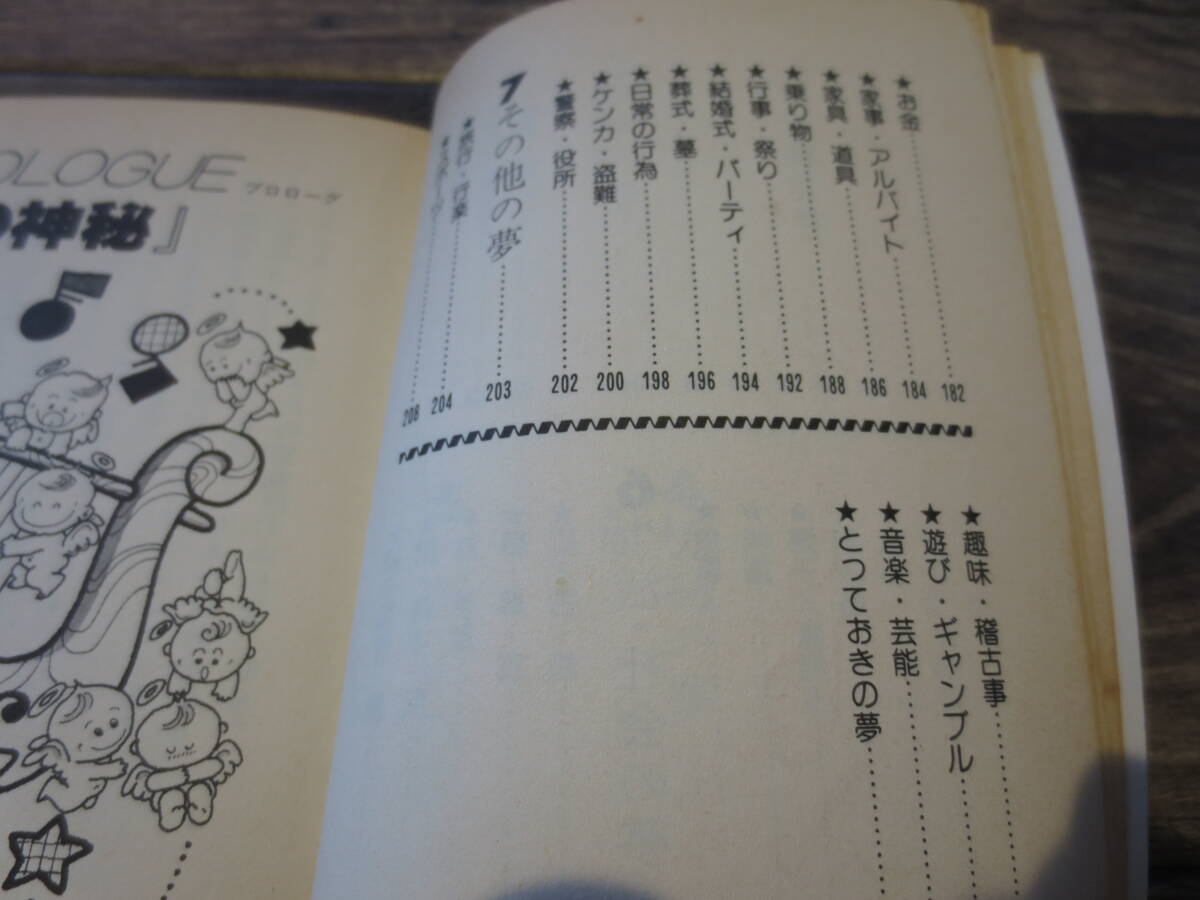 ★お金 182
★家事・アルバイト 184
★家具・道具 186
★乗り物 188
★行事・祭り 192
★結婚式・パーティ 194
★葬式・墓 196
★日常の行為 198
★ケンカ・盗難 200
★警察・役所 202
7 その他の夢 203
★旅行・行楽 204
208
★趣味・稽古事
★遊び・ギャンブル
★音楽・芸能
★とっておきの夢
OLOGUE プロローグ
の神秘』